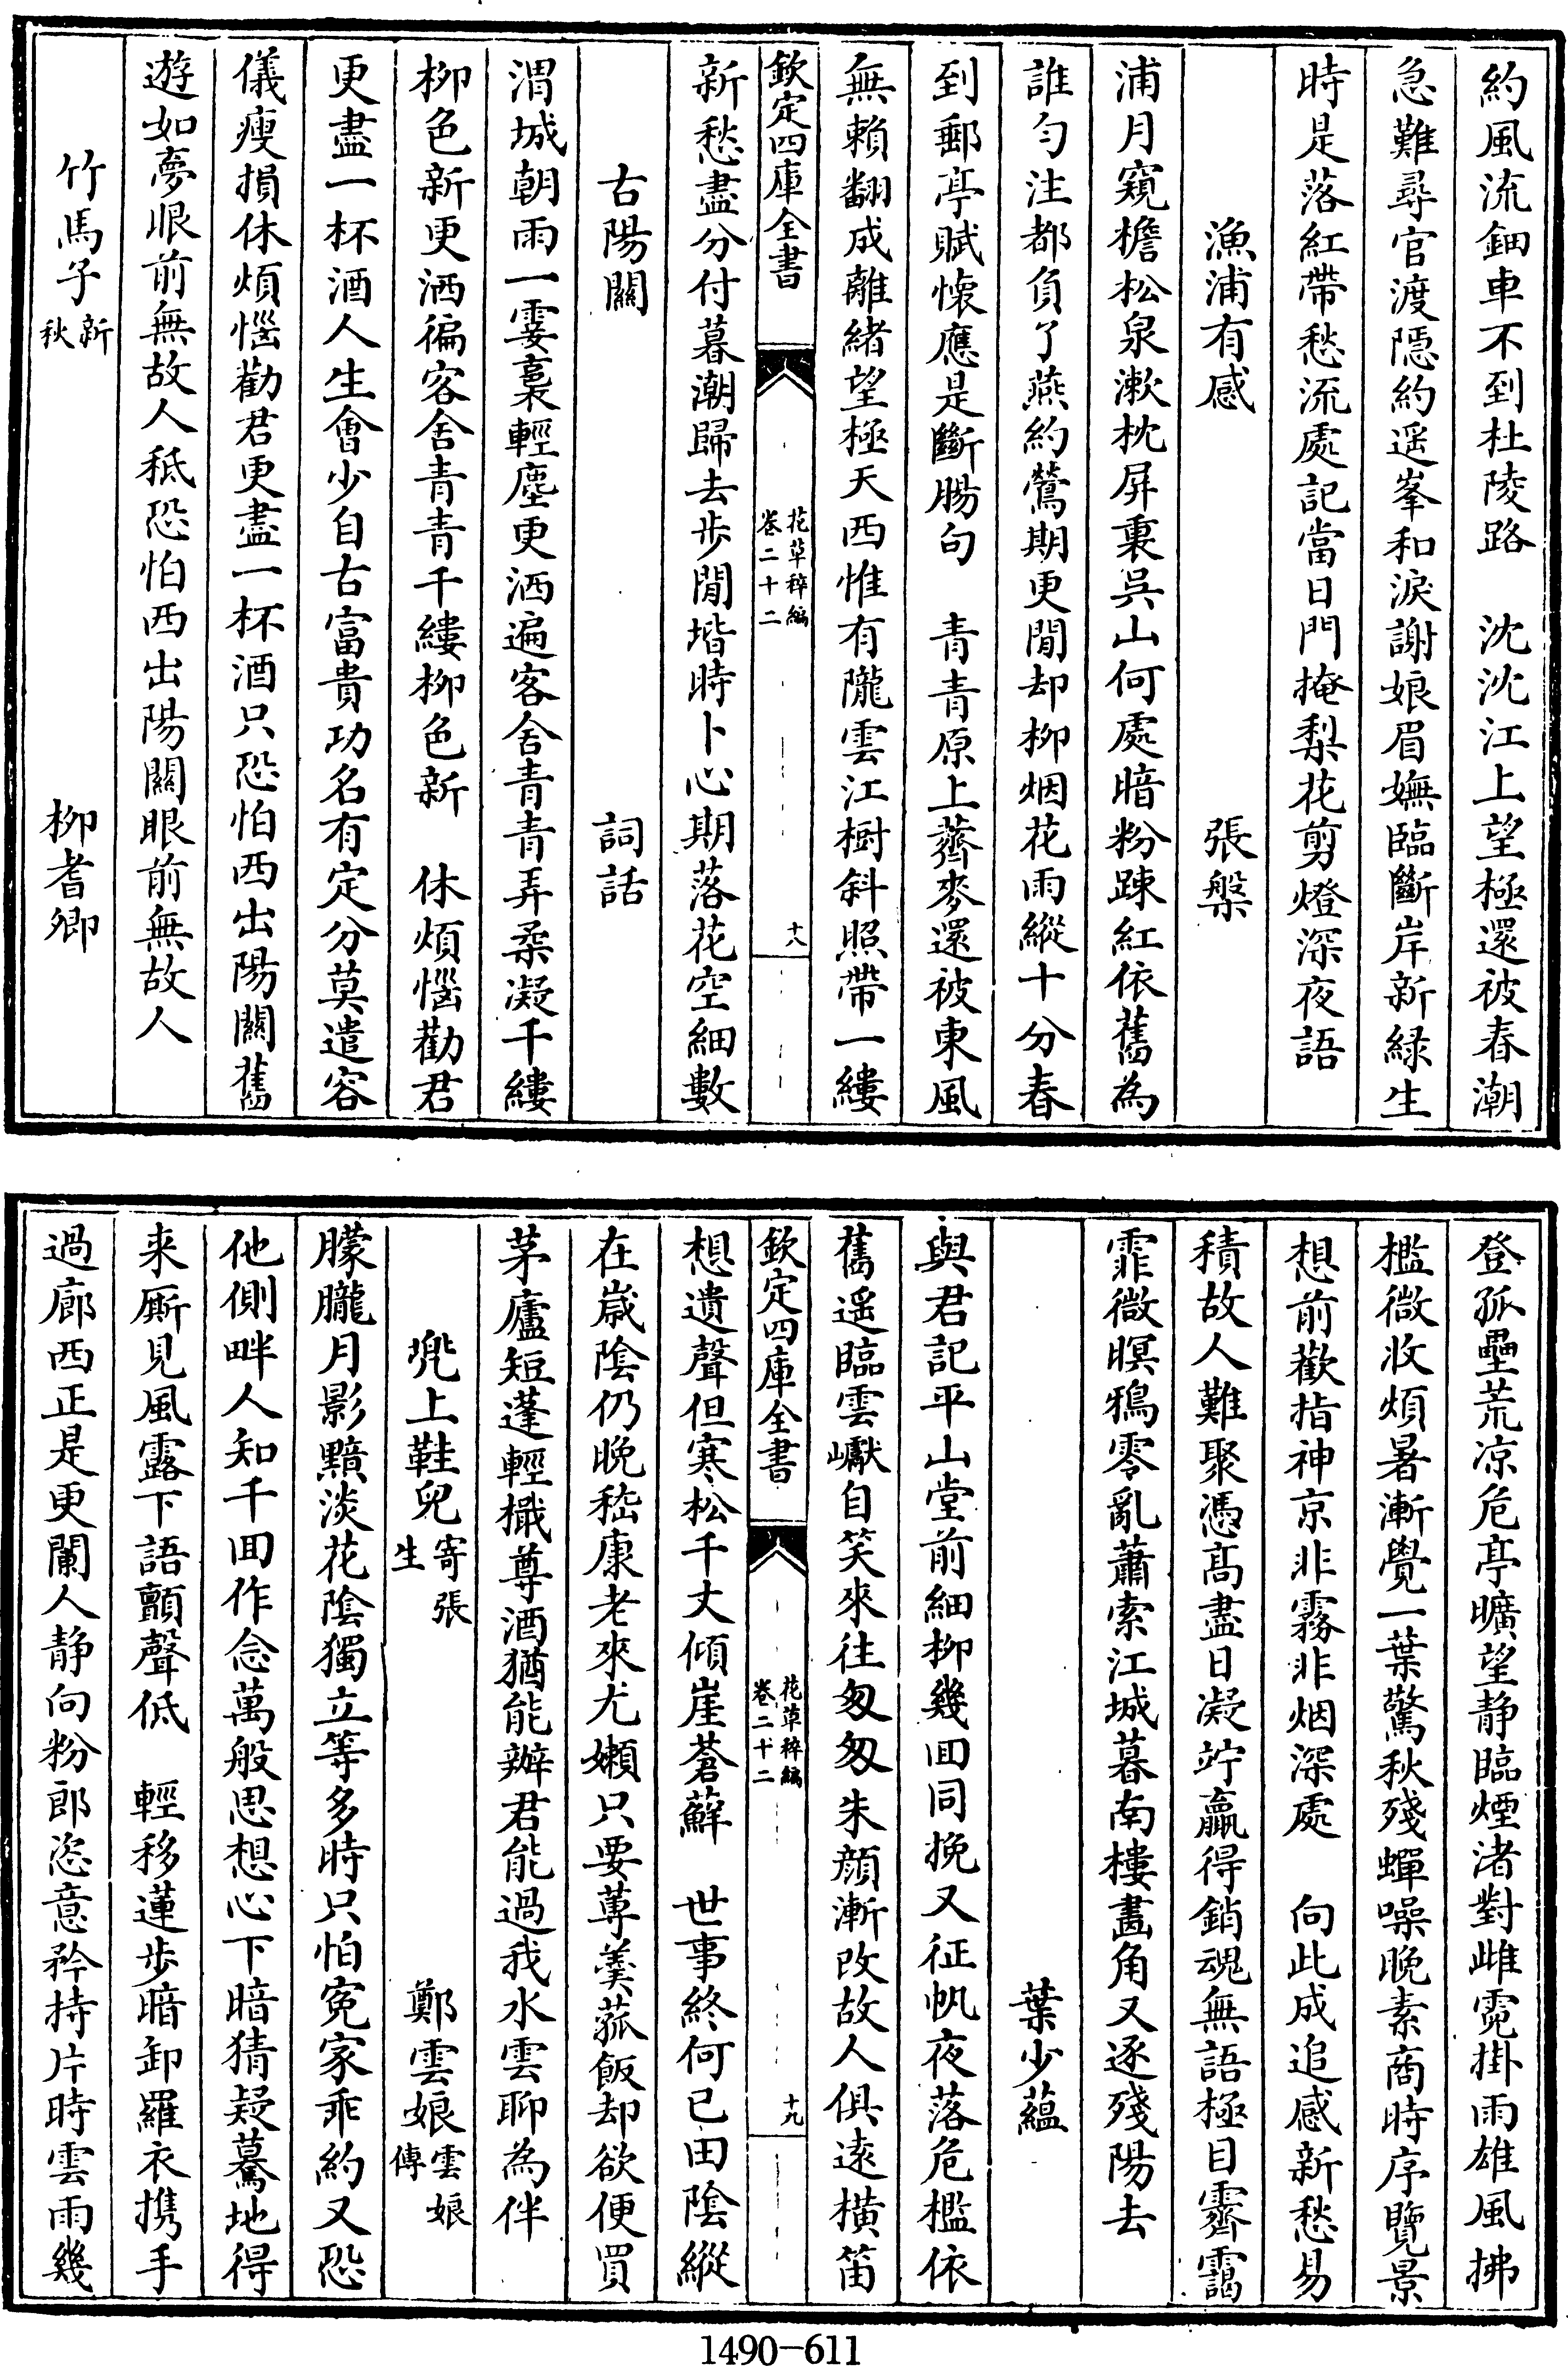 約風流鈿車不到杜陵路　沈沈江上望極還被春潮
急難尋官渡隠約遥峯和淚謝娘眉嫵臨斷岸新緑生
時是落紅帶愁流處記當日門掩梨花剪燈深夜語
漁浦有感　張槃
浦月窺檐松泉漱枕屏裏吳山何處暗粉踈紅依舊為
誰匀注都負了燕約鶯期更閒却柳烟花雨縱十分春
到郵亭賦懷應是斷腸句　青青原上薺麥還被東風
無賴翻成離緒望極天西惟有隴雲江樹斜照帶一縷
欽定四庫全書　花草稡編卷二十二　十八
新愁盡分付暮潮歸去步閒堦時卜心期落花空細數
古陽關　詞話
渭城朝雨一霎裛輕塵更洒遍客舍青青弄柔凝千縷
柳色新更洒徧客舍青青千縷柳色新　休煩惱勸君
更盡一杯酒人生會少自古富貴功名有定分莫遣容
儀瘦損休煩惱勸君更盡一杯酒只恐怕西出陽關舊
遊如夢眼前無故人秪恐怕西出陽關眼前無故人
竹馬子新秋　柳耆卿
登孤壘荒凉危亭曠望静臨煙渚對雌霓掛雨雄風拂
檻微收煩暑漸覺一葉驚秋殘蟬噪晚素商時序覽景
想前歡指神京非霧非烟深處　向此成追感新愁易
積故人難聚憑髙盡日凝竚贏得銷魂無語極目霽靄
霏微暝鴉零亂蕭索江城暮南樓畫角又逐殘陽去
葉少藴
與君記平山堂前細柳幾囬同挽又征帆夜落危檻依
舊遥臨雲巘自笑來往匆匆朱顔漸改故人俱逺横笛
欽定四庫全書　花草稡編卷二十二　十九
想遺聲但寒松千丈傾崖蒼蘚　世事終何已田陰縱
在嵗陰仍晚嵇康老來尤嬾只要蓴羮菰飯却欲便買
茅廬短蓬輕檝尊酒猶能辦君能過我水雲聊為伴
兠上鞋兒寄張生　鄭雲娘雲娘傳
朦朧月影黯淡花陰獨立等多時只怕寃家乖約又恐
他側畔人知千囬作念萬般思想心下暗猜疑驀地得
来厮見風露下語顫聲低　輕移蓮步暗卸羅衣携手
過廊西正是更闌人静向粉郎恣意矜持片時雲雨幾
1490-611